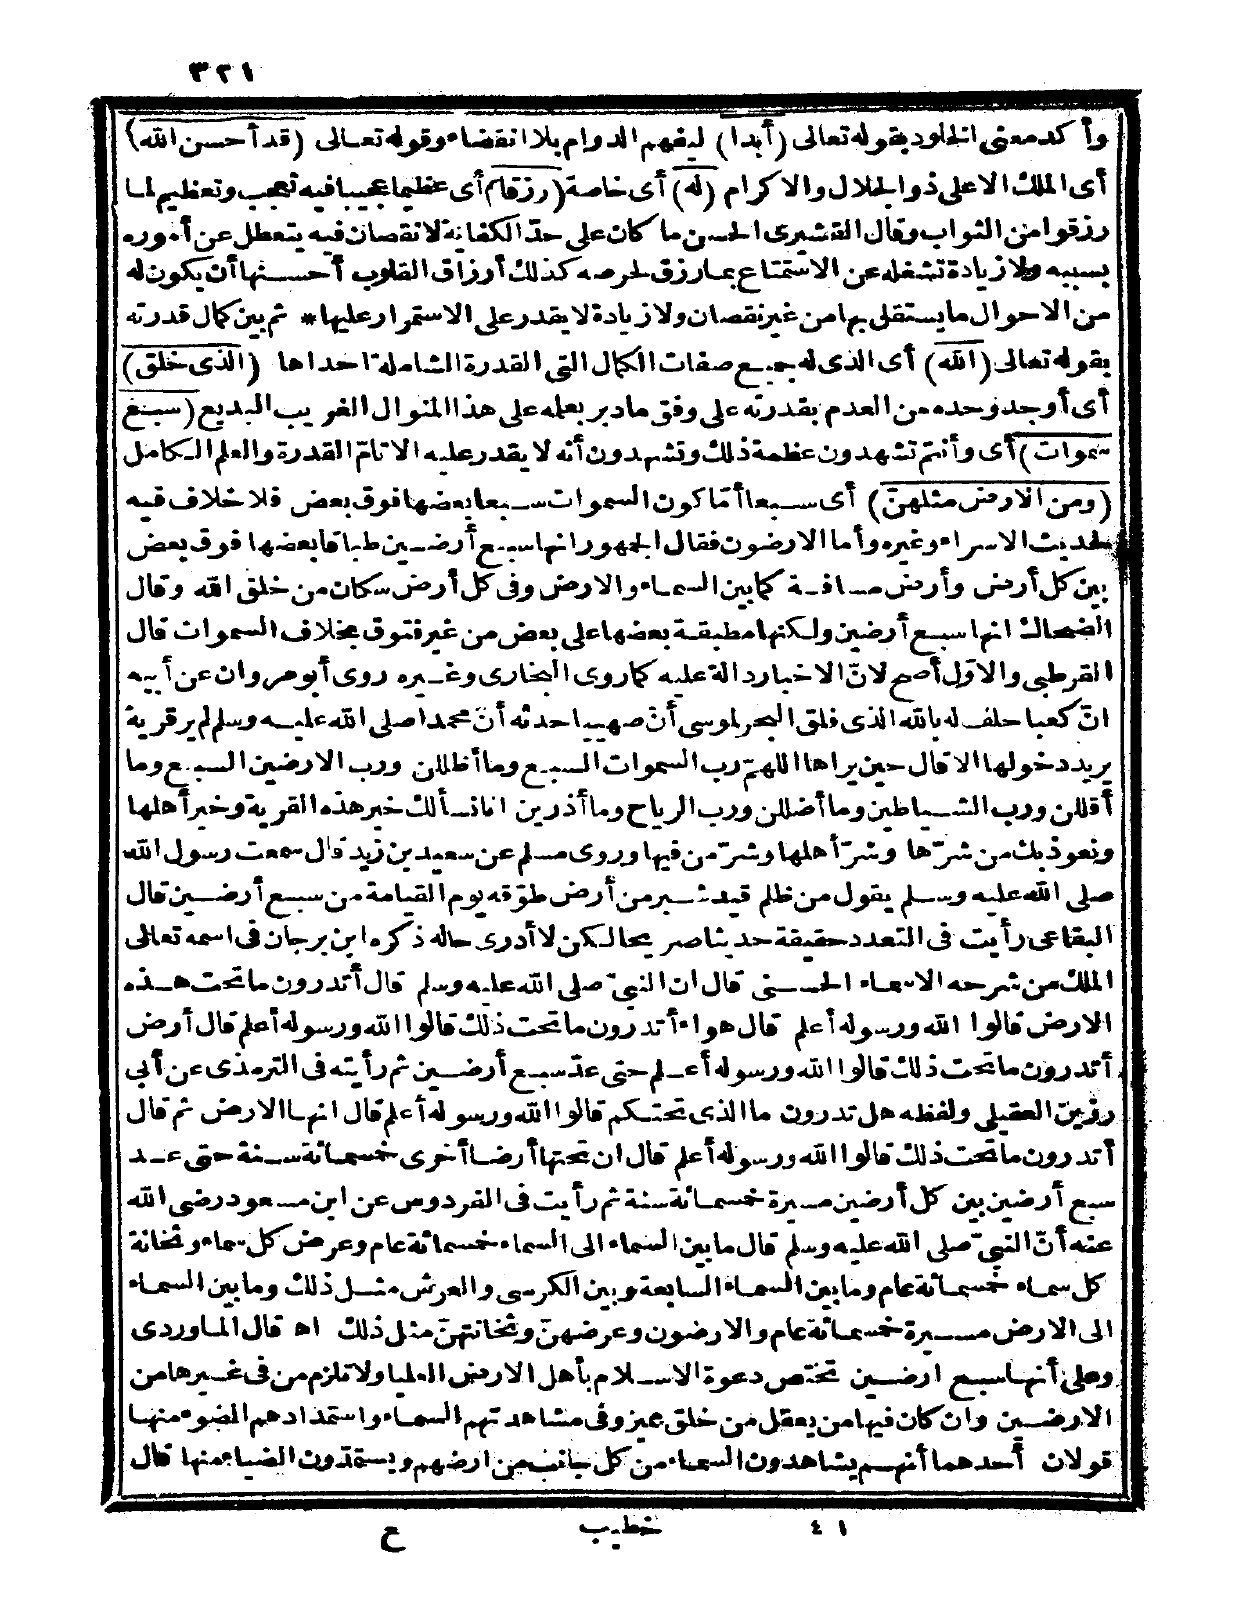 ٣٢١
وأكد معنى الخلود بقوله تعالى (أبدا) ليفهم الدوام بلا انقضاء وقوله تعالى (قد أحسن الله)
أى الملك الاعلى ذو الجلال والاكرام (له) أى خاصة (رزقا) أى عظيما عجيبا فيه تعجب وتعظيم لما
رزقوا من الثواب وقال القشيرى الحسن ما كان على حدّ الكفاية لا نقصان فيه يتعطل عن أموره
بسببه ولا زيادة تشغله عن الاستمتاع بما رزق لحرصه كذلك أرزاق القلوب أحسنها أن يكون له
من الاحوال ما يستقل بها من غير نقصان ولا زيادة لا يقدر على الاستمرار عليها * ثم بين كمال قدرته
بقوله تعالى (الله) أى الذى له جميع صفات الكمال التى القدرة الشاملة احداها (الذى خلق)
أى أوجد وحده من العدم بقدرته على وفق ما دبر بعلمه على هذا المنوال الغريب البديع (سبع
سموات) أى وأنتم تشهدون عظمة ذلك وتشهدون أنه لا يقدر عليه الا تامّ القدرة والعلم الكامل
(ومن الارض مثلهنّ) أى سبعا أمّا كون السموات سبعا بعضها فوق بعض فلا خلاف فيه
لحديث الاسراء وغيره وأما الارضون فقال الجمهور انها سبع أرضين طباقا بعضها فوق بعض
بين كل أرض وأرض مسافة كما بين السماء والارض وفى كل أرض سكان من خلق الله وقال
الضحاك انها سبع أرضين ولكنها مطبقة بعضها على بعض من غير فتوق بخلاف السموات قال
القرطبى والاوّل أصح لانّ الاخبار دالة عليه كما روى البخارى وغيره روى أبو مروان عن أبيه
انّ كعبا حلف له بالله الذى فلق البحر لموسى أن صهيبا حدثه أنّ محمدا صلى الله عليه وسلم لم ير قرية
يريد دخولها الا قال حين يراها اللهمّ رب السموات السبع وما أظللن ورب الارضين السبع وما
أقللن ورب الشياطين وما أضللن ورب الرياح وما أذرين انا نسألك خير هذه القرية وخير أهلها
ونعوذ بك من شرّها وشرّ أهلها وشرّ من فيها وروى مسلم عن سعيد بن زيد قال سمعت رسول الله
صلى الله عليه وسلم يقول من ظلم قيد شبر من أرض طوّقه يوم القيامة من سبع أرضين قال
البقاعى رأيت فى التعدد حقيقة حديثا صريحا لكن لا أدرى حاله ذكره ابن برجان فى اسمه تعالى
الملك من شرحه الاسماء الحسنى قال ان النبىّ صلى الله عليه وسلم قال أتدرون ما تحت هذه
الارض قالوا الله ورسوله أعلم قال هواء أتدرون ما تحت ذلك قالوا الله ورسوله أعلم قال أرض
أتدرون ما تحت ذلك قالوا الله ورسوله أعلم حتى عدّ سبع أرضين ثم رأيته فى الترمذى عن أبى
رزين العقيلى ولفظه هل تدرون ما الذى تحتكم قالوا الله ورسوله أعلم قال انها الارض ثم قال
أتدرون ما تحت ذلك قالوا الله ورسوله أعلم قال ان تحتها أرضا أخرى خمسمائة سنة حتى عد
سبع أرضين بين كل أرضين مسيرة خمسمائة سنة ثم رأيت فى الفردوس عن ابن مسعود رضى الله
عنه أنّ النبىّ صلى الله عليه وسلم قال ما بين السماء الى السماء خمسمائة عام وعرض كل سماء وثخانة
كل سماء خمسمائة عام وما بين السماء السابعة وبين الكرسى والعرش مثل ذلك وما بين السماء
الى الارض مسيرة خمسمائة عام والارضون وعرضهنّ وثخانتهنّ مثل ذلك اه قال الماوردى
وعلى أنها سبع ارضين تختص دعوة الاسلام بأهل الارض العليا ولا تلزم من فى غيرها من
الارضين وان كان فيها من يعقل من خلق مميز وفى مشاهدتهم السماء واستمدادهم الضوء منها
قولان أحدهما أنهم يشاهدون السماء من كل جانب من ارضهم ويستمدّون الضياء منها قال
٤١ خطيب ع